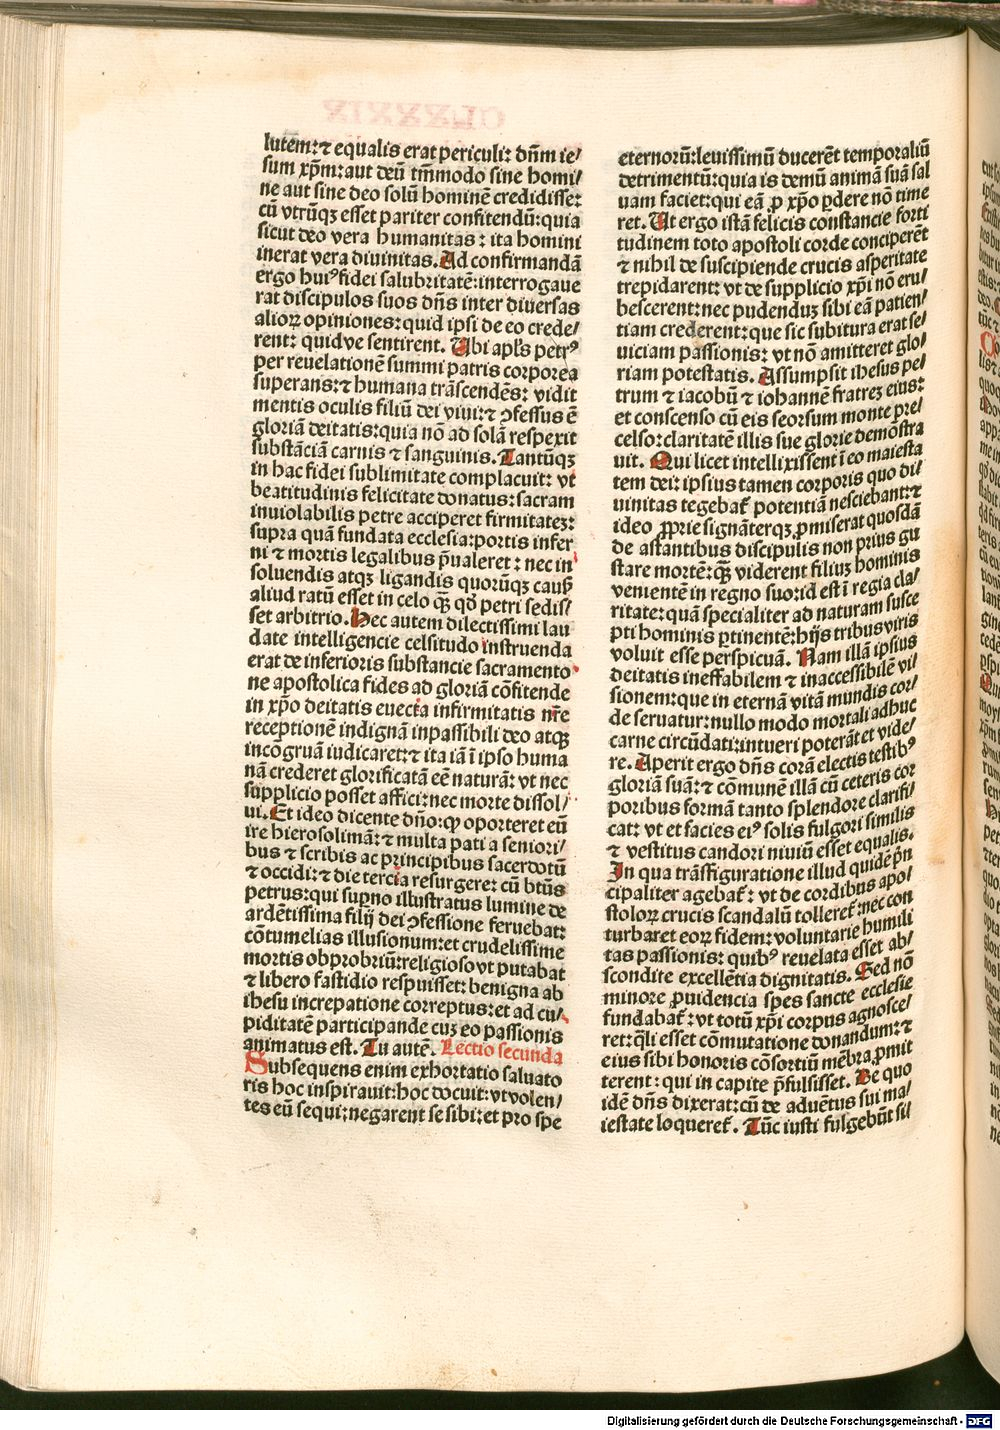 lutem:⁊ equalis erat periculi: dn̄m ie/
sum xp̄m:aut deū tm̄modo sine homi/
ne aut sine deo solū hominē credidisse:
cū vtrūqꝫ esset pariter confitendū:quia
sicut deo vera humanitas: ita homini
inerat vera diuinitas. Ad confirmandā
ergo huiꝰ fidei salubritatē:interrogaue
rat discipulos suos dn̄s inter diuersas
alioꝝ opiniones:quid ipsi de eo crede/
rent: quidve sentirent. Ubi apl̄s petrꝰ
per reuelationē summi patris corporea
superans:⁊ humana trāscendēs: vidit
mentis oculis filiū dei viui:⁊ ꝯfessus ē
gloriā deitatis:quia nō ad solā respexit
substāciā carnis ⁊ sanguinis. Tantūqꝫ
in hac fidei sublimitate complacuit: vt
beatitudinis felicitate donatus:sacram
inuiolabilis petre acciperet firmitatez:
supra quā fundata ecclesia:portis infer
ni ⁊ mortis legalibus p̄ualeret: nec in
soluendis atqꝫ ligandis quorūqꝫ causꝭ
aliud ratū esset in celo qꝫ̄ qd̄ petri sedis/
set arbitrio. Hec autem dilectissimi lau
date intelligencie celsitudo instruenda
erat de inferioris substancie sacramento
ne apostolica fides ad gloriā cōfitende
in xp̄o deitatis euecta infirmitatis nr̄e
receptionē indignā inpassibili deo atqꝫ
incōgruā iudicaret:⁊ ita iā ī ipso huma
nā crederet glorificatā eē naturā: vt nec
supplicio posset affici:nec morte dissol/
ui. Et ideo dicente dn̄o:ꝙ oporteret eū
ire hierosolimā:⁊ multa pati a seniori/
bus ⁊ scribis ac principibus sacerdotū
⁊ occidi:⁊ die tercia resurgere: cū btūs
petrus:qui suꝑno illustratus lumine de
ardētissima filij dei ꝯfessione feruebat:
cōtumelias illusionum:et crudelissime
mortis obprobriū:religioso vt putabat
⁊ libero fastidio respuisset: benigna ab
ihesu increpatione correptus:et ad cu/
piditatē participande cuꝫ eo passionis
animatus est. Tu autē. Lectio secunda
Subsequens enim exhortatio saluato
ris hoc inspirauit:hoc docuit: vt volen/
tes eū sequi:negarent se sibi:et pro spe
eternorū:leuissimū ducerēt temporaliū
detrimentū:quia is demū animā suā sal
uam faciet:qui eā ꝓ xp̄o ꝑdere nō time
ret. Ut ergo istā felicis constancie forti
tudinem toto apostoli corde conciperēt
⁊ nihil de suscipiende crucis asperitate
trepidarent: vt de supplicio xp̄i nō eru/
bescerent:nec pudenduꝫ sibi eā patien/
tiam crederent:que sic subitura erat se/
uiciam passionis: vt nō amitteret glo/
riam potestatis. Assumpsit ihesus pe/
trum ⁊ iacobū ⁊ iohannē fratreꝫ eius:
et conscenso cū eis seorsum monte pre/
celso:claritatē illis sue glorie demōstra
uit. Qui licet intellixissent ī eo maiesta
tem dei: ipsius tamen corporis quo di/
uinitas tegebat᷑ potentiā nesciebant:⁊
ideo ꝓprie signāterqꝫ ꝓmiserat quosdā
de astantibus discipulis non prius gu
stare mortē:qꝫ̄ viderent filiuꝫ hominis
venientē in regno suo:id est ī regia cla/
ritate:quā specialiter ad naturam susce
pti hominis ꝑtinentē:hijs tribus viris
voluit esse perspicuā. Nam illā ipsius
deitatis ineffabilem ⁊ inaccessibilē vi/
sionem:que in eternā vitā mundis cor/
de seruatur:nullo modo mortali adhuc
carne circūdati:intueri poterāt et vide/
re. Aperit ergo dn̄s corā electis testibꝰ
gloriā suā:⁊ cōmunē illā cū ceteris cor
poribus formā tanto splendore clarifi/
cat: vt et facies eiꝰ solis fulgori similis
⁊ vestitus candori niuiū esset equalis.
In qua trāsfiguratione illud quidē p̄n
cipaliter agebat᷑: vt de cordibus apo/
stoloꝝ crucis scandalū tolleret᷑:nec con
turbaret eoꝝ fidem:voluntarie humili
tas passionis: quibꝰ reuelata esset ab/
scondite excellētia dignitatis. Sed nō
minore ꝓuidencia spes sancte ecclesie
fundabat᷑: vt totū xp̄i corpus agnosce/
ret:qli esset cōmutatione donandum:⁊
eius sibi honoris cōsortiū mēbra ꝓmit
terent: qui in capite p̄fulsisset. De quo
idē dn̄s dixerat:cū de aduētus sui ma/
iestate loqueret᷑. Tūc iusti fulgebūt si/